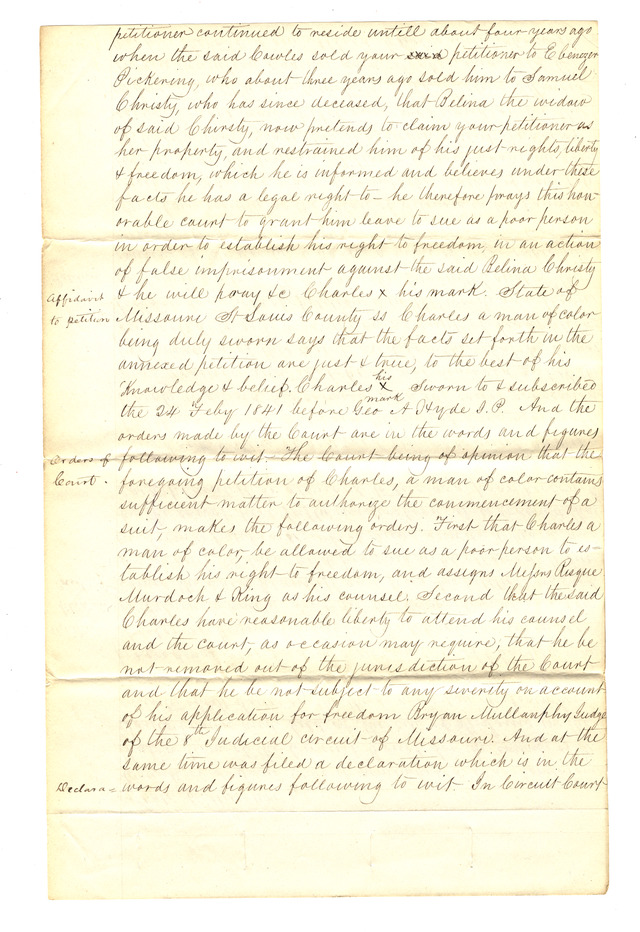 petitioner continued to reside untill about four years ago
when the said Cowles sold your petitioner to Ebenezer
Pickering, who about three years ago sold him to Samuel
Christy, who has since deceased, that Belina the widow
of said Chirsty, now pretends to claim your petitioner as
her property, and restrained him of his just rights, liberty
& freedom, which he is informed and believes under these
facts he has a legal right to – he therefore prays this hon-
orable court to grant him leave to sue as a poor person
in order to establish his right to freedom, in an action
of false imprisonment against the said Belina Christy
Affidavit & he will pray &c Charles x his mark. State of
to petition Missouri St Louis County ss Charles a man of color
being duly sworn says that the facts set forth in the
annexed petition are just & true, to the best of his
Knowledge & belief. Charles his x mark Sworn to & subscribed
the 24 Feby 1841 before Geo A Hyde J.P. And the
orders made by the Court are in the words and figures
Orders of following to wit – The Court being of opinion that the
Court. foregoing petition of Charles, a man of color contains
sufficient matter to authorize the commencement of a
suit, makes the following orders. First that Charles a
man of color, be allowed to sue as a poor person to es-
tablish his right to freedom, and assigns Messrs Risque
Murdoch & King as his counsel. Second that the said
Charles have reasonable liberty to attend his counsel
and the court, as occasion may require, that he be
not removed out of the jurisdiction of the Court
and that he be not subject to any severity on account
of his application for freedom Bryan Mullanphy Judge
of the 8th Judicial circuit of Missouri. And at the
same time was filed a declaration which is in the
Declara = words and figures following to wit – In Circuit Court